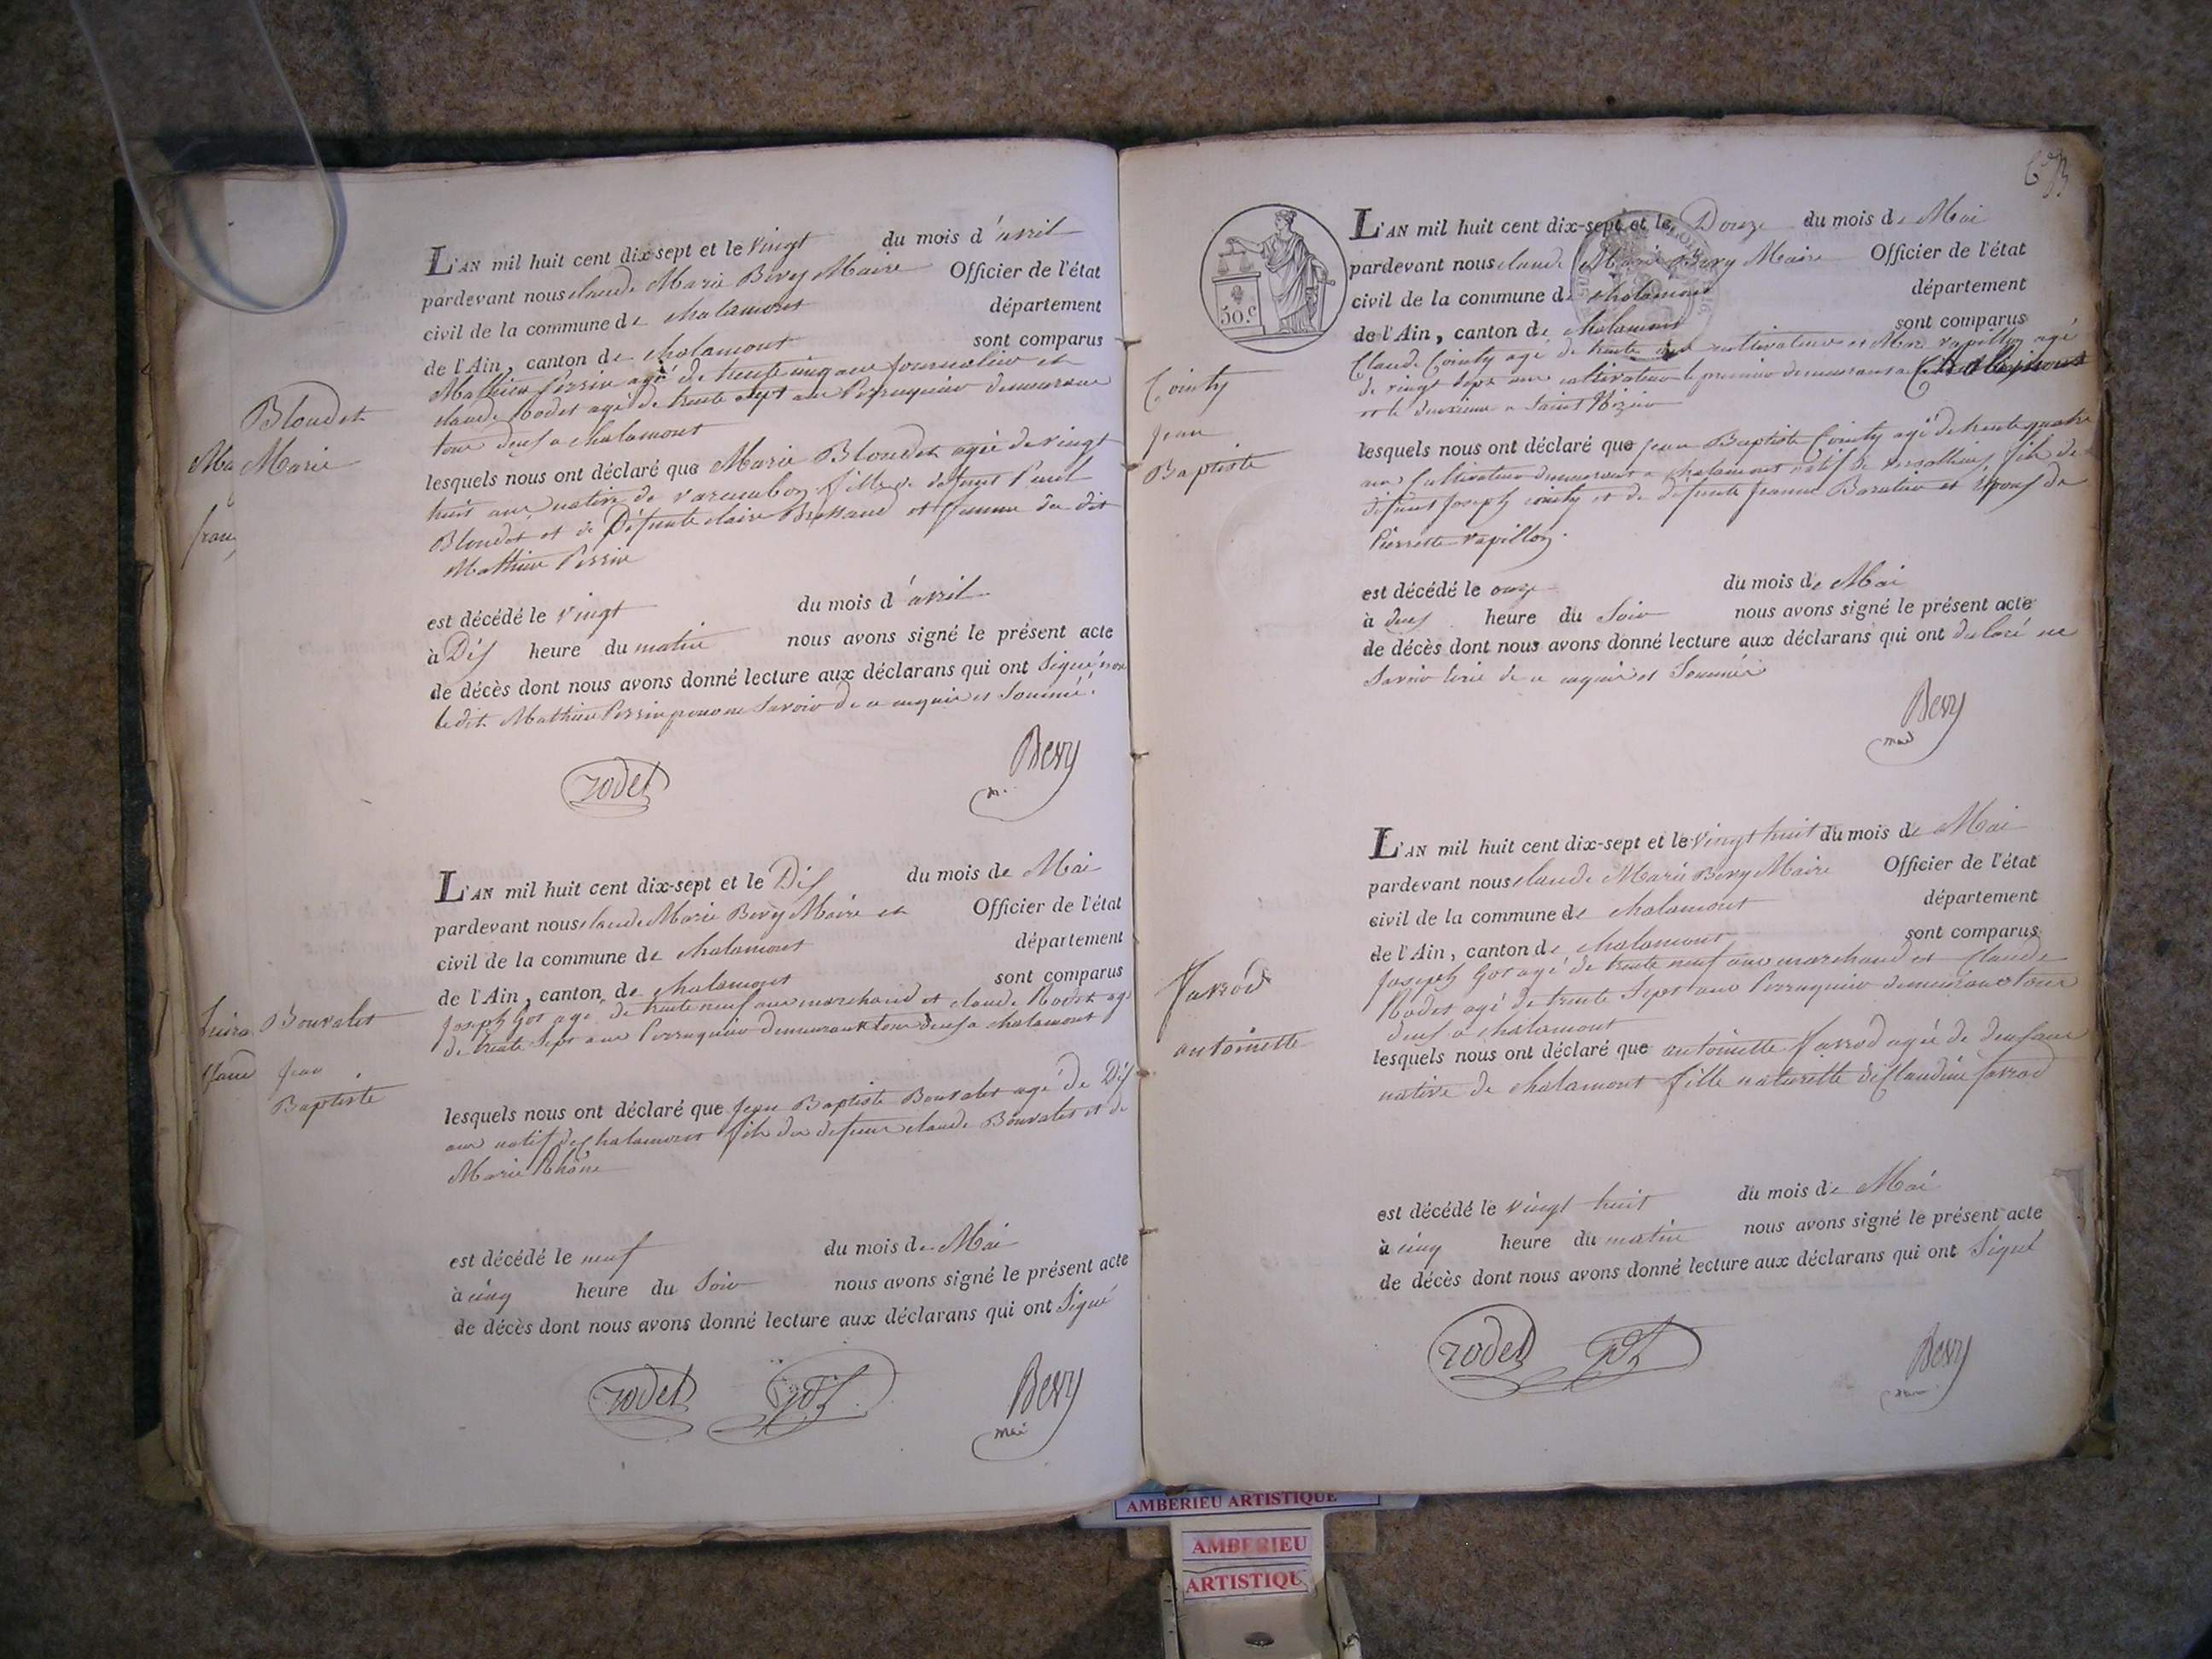 L'AN mil huit cent dix-sept et le vingt du mois d'avril
pardevant nous claude Marie Bevy Maire Officier de l'état
civil de la commune de chalamont département
de l'Ain, canton de chalamont sont comparus
Mathieu Perrin agé de trente cinq ans journalier et
claude Rodet agé de trente sept ans Perruquier demeurant
tous deux a chalamont
Blondet
Marie
lesquels nous ont déclaré que Marie Blondet agée de vingt
huit ans native de varambon fille de defunt Paul
Blondet et de Défunte claire Brossand et femme du dit
Mathieu Perrin
est décédé le vingt du mois d'avril
à Dix heure du matin nous avons signé le présent acte
de décès dont nous avons donné lecture aux déclarans qui ont Signé non
ledit Mathieu Perrin pour ne Savoir de ce enquis et Sommé
rodet Bevy
L'AN mil huit cent dix-sept et le Dix du mois de Mai
pardevant nous claude Marie Bevy Maire et Officier de l'état
civil de la commune de chalamont département
de l'Ain, canton de chalamont sont comparus
Joseph Got agé de trente neuf ans marchand et claude Rodet agé
de trente Sept ans Perruquier demeurant tous deux a chalamont
Bouvalet
Jean
Baptiste
lesquels nous ont déclaré que Jean Baptiste Bouvalet agé de Dix
ans natif de chalamont fils du defunt claude Bouvalet et de
Marie Rhône
est décédé le neuf du mois de Mai
à cinq heure du Soir nous avons signé le présent acte
de décès dont nous avons donné lecture aux déclarans qui ont Signé
rodet got Bevy
mai
50.c
L'AN mil huit cent dix-sept et le Douze du mois de Mai
pardevant nous claude Marie Bevy Maire Officier de l'état
civil de la commune de chalamont département
de l'Ain, canton de chalamont sont comparus
Claude Cointy agé de trente ans cultivateur et Marc vapillon agé
de vingt sept ans cultivateur le premier demeurant a
et le deuxieme a Saint Nizier
Cointy
Jean
Baptiste
lesquels nous ont déclaré que Jean Baptiste Cointy agé de trente quatre
ans Cultivateur demeurant a chalamont natif de versailleux fils de
défunt Joseph cointy et de défunte Jeanne et Epoux de
Pierrette vapillon
est décédé le onze du mois de Mai
à deux heure du Soir nous avons signé le présent acte
de décès dont nous avons donné lecture aux déclarans qui ont declaré ne
Savoir de ce enquis et Sommés
Bevy
L'AN mil huit cent dix-sept et le vingt huit du mois de Mai
pardevant nous claude Marie Bevy Maire Officier de l'état
civil de la commune de chalamont département
de l'Ain, canton de chalamont sont comparus
Joseph Got agé de trente neuf ans marchand et Claude
Rodet agé de trente Sept ans Perruquier demeurant tous
deux a chalamont
Favrod
antoinette
lesquels nous ont déclaré que antoinette Favrod agée de deux ans
native de chalamont fille naturelle de Claudine favrod
est décédé le vingt huit du mois de Mai
à cinq heure du matin nous avons signé le présent acte
de décès dont nous avons donné lecture aux déclarans qui ont Signé
rodet got Bevy
AMBERIEU ARTISTIQUE
AMBERIEU
ARTISTIQU